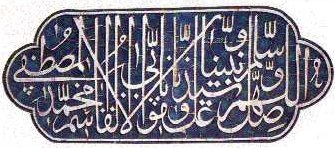 اللهم صل وسلم على نبينا وسيدنا ومولانا ابي القاسم محمد المصطفى